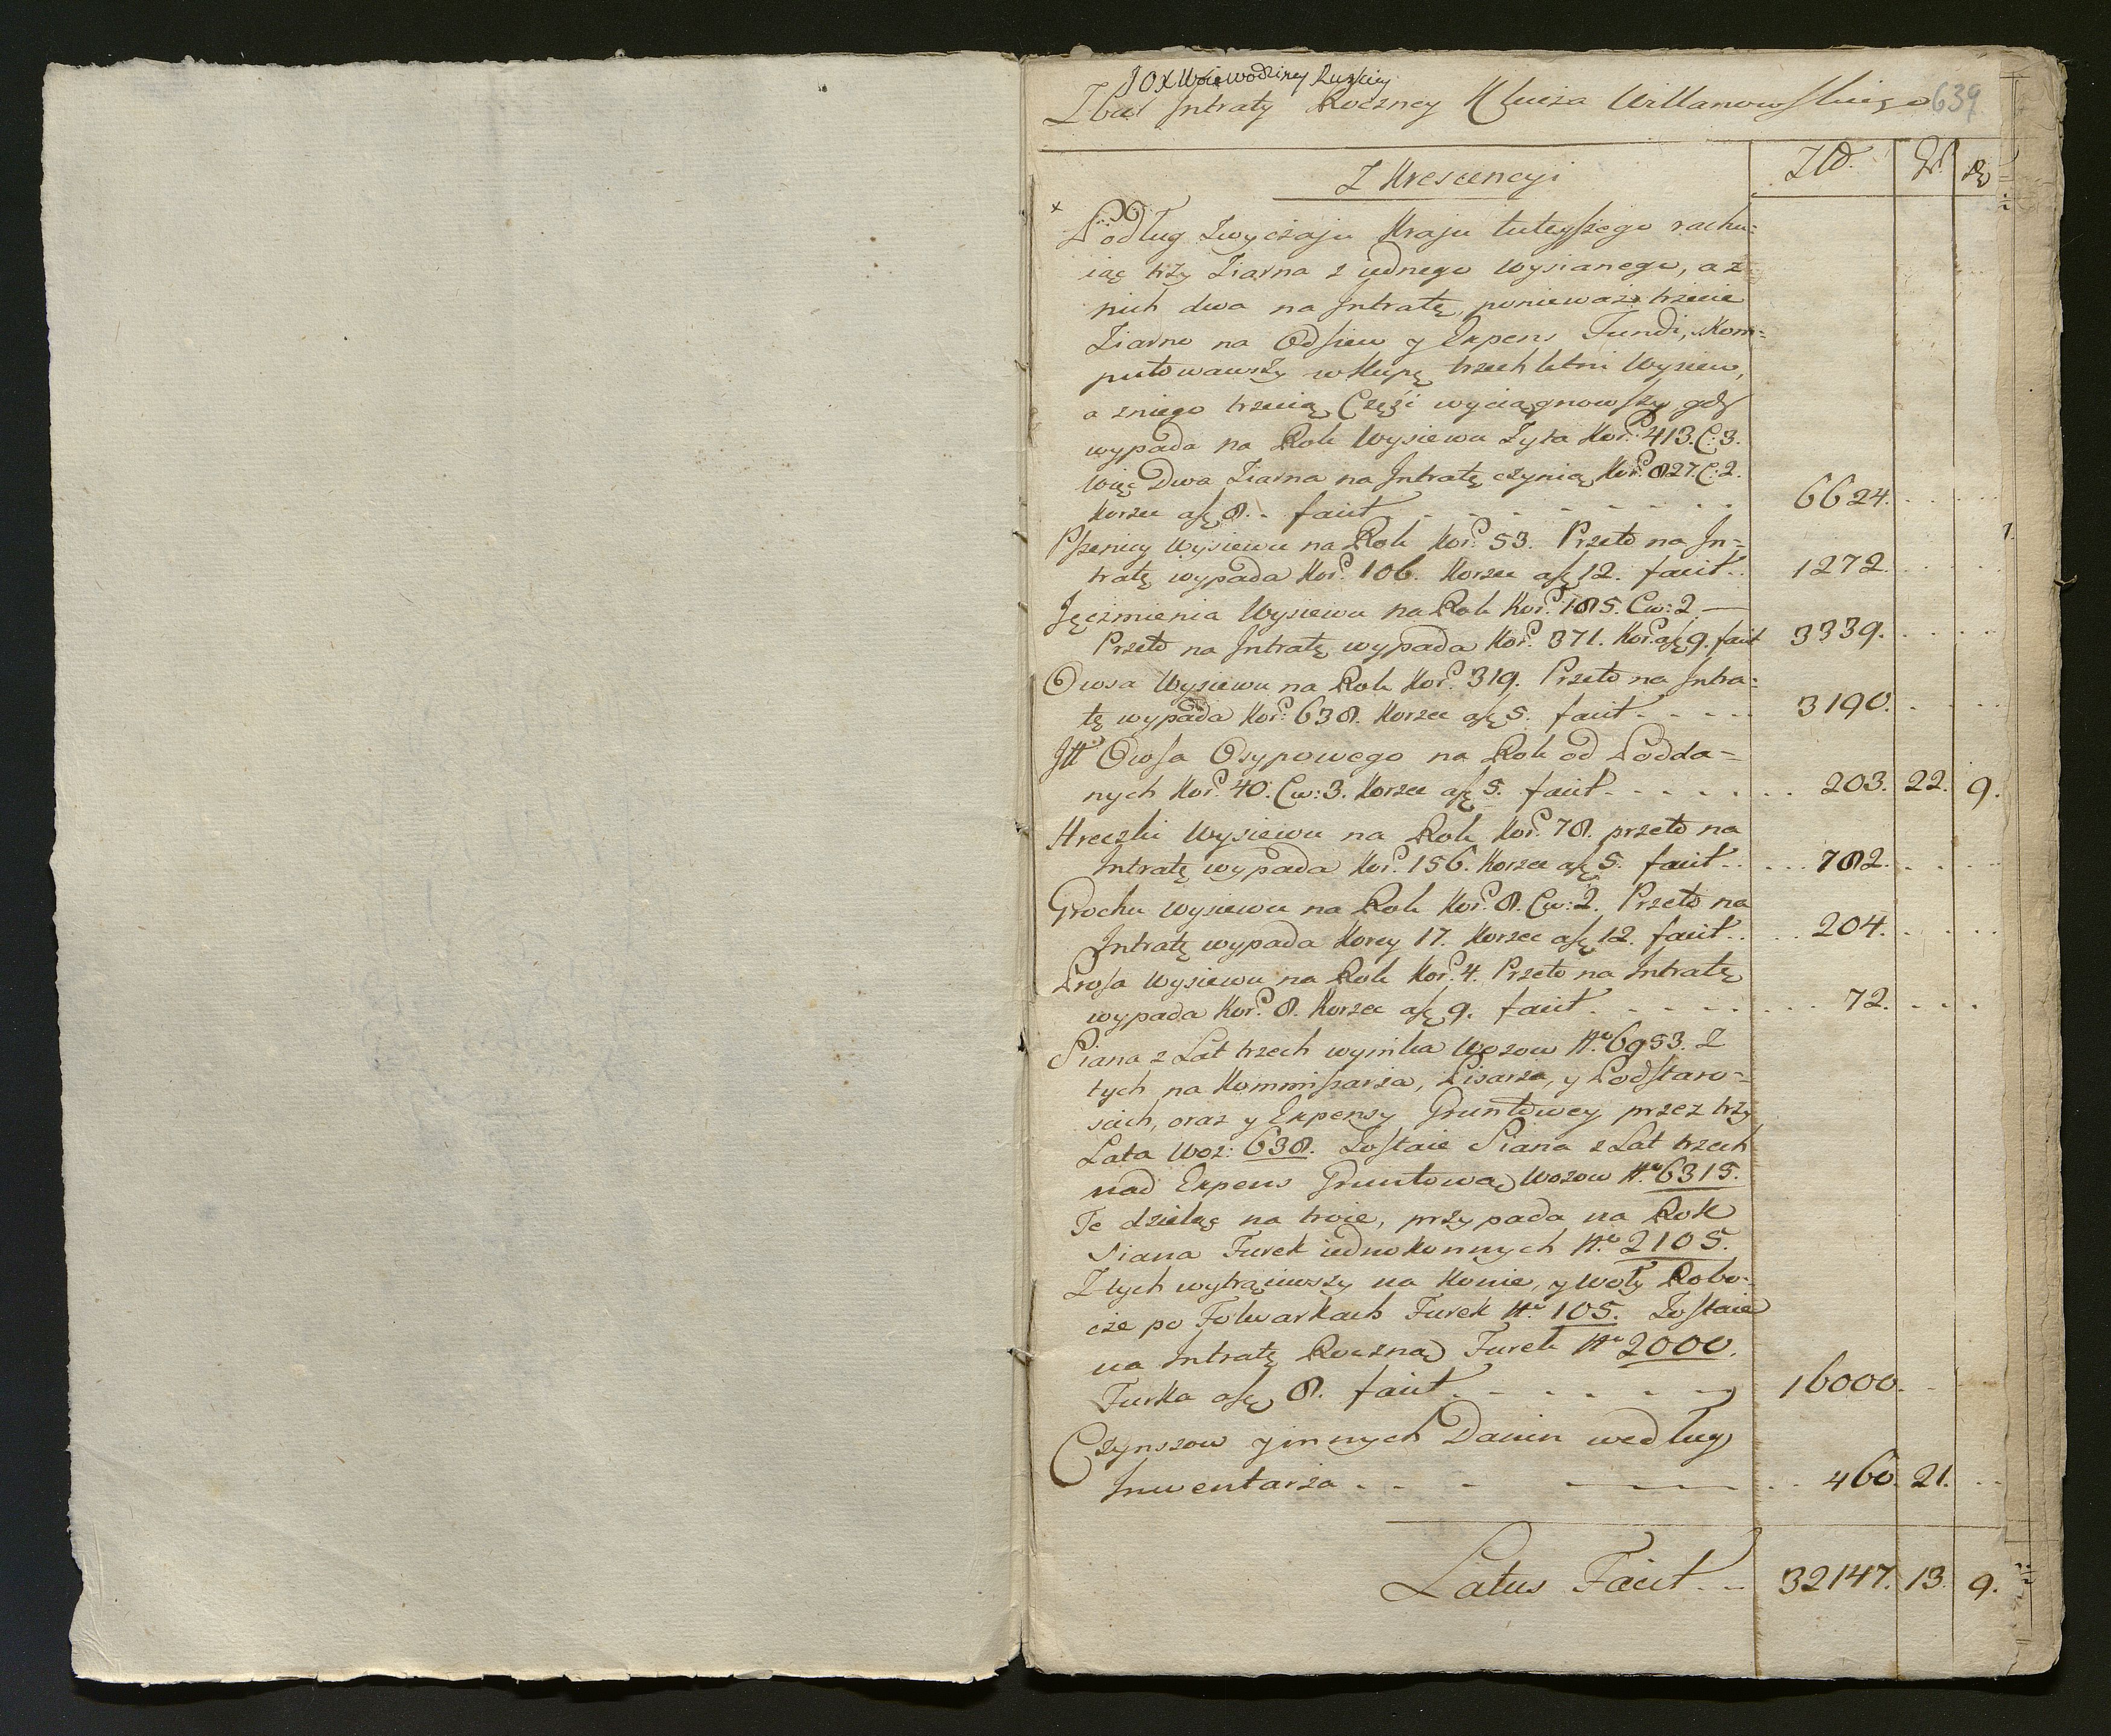 JOX Woiewodziney Ruskiey
Zbiór Intraty Roczney Klucza Willanowskiego 639
Z Krescencyi Złł. Gr. D
x
Podług Zwyczaju Kraju tuteyszego rachu:
iąc trzy Ziarna z iednego Wysianego, a z
nich dwa na Intratę, ponieważ trzecie
Ziarno na Odsiew y Expens Fundi, Kom=
putowawszy w Kupę trzech letni Wysiew,
a z niego trzecią Częśc wyciągnowszy gdy
wypada na Rok Wysiewu Zyta Kor: 413. C: 3.
Więc Dwa Ziarna na Intratę czynią Kor: 827. C: 2.
Korzec a fl 8. facit 6624.
Pszenicy Wysiewu na Rok Kor: 53. Przeto na In=
tratę wypada Kor: 106. Korzec a fl 12. facit 1272.
Jęczmienia Wysiewu na Rok Kor: 185. Cw: 2 —
Przeto na Intratę wypada Kor: 371. Kor: a fl 9. facit 3339.
Owsa Wysiewu na Rok Kor: 319. Przeto na Intra=
tę wypada Kor: 638. Korzec a fl 5. facit 3190.
Itt Owsa Osypowego na Rok od Podda=
nych Kor: 40. Cw: 3. Korzec a fl 5. facit 203. 22. 9.
Hreczki Wysiewu na Rok Kor: 78. przeto na
Intratę wypada Kor: 156. Korzec a fl 5. facit 782.
Grochu wysiewu na Rok Kor: 8. Cw: 2. Przeto na
Intratę wypada Korcy 17. Korzec a fl 12. facit 204.
Prosa Wysiewu na Rok Kor: 4. Przeto na Intratę
wypada Kor: 8. Korzec a fl 9. facit 72.
Siana z Lat trzech wynika Wozow No 6953. Z
tych na Kommisarza, Pisarza, y Podstaro=
scich, oraz y Expensy Gruntowey przez trzy
Lata Woz: 638. Zostaie Siana z Lat trzech
nad Expens Gruntową Wozow No 6315.
Te dzieląc na troie, przypada na Rok
Siana Furek iednokonnych No 2105.
Z tych wytrąciwszy na Konie, y Woły Robo=
cze po Folwarkach Furek No 105. Zostaie
na Intratę Roczną Furek No 2000.
Furka a fl 8. facit 16000.
Czynszow y innych Danin według
Inwentarza 460. 21.
Latus Facit 32147. 13. 9.